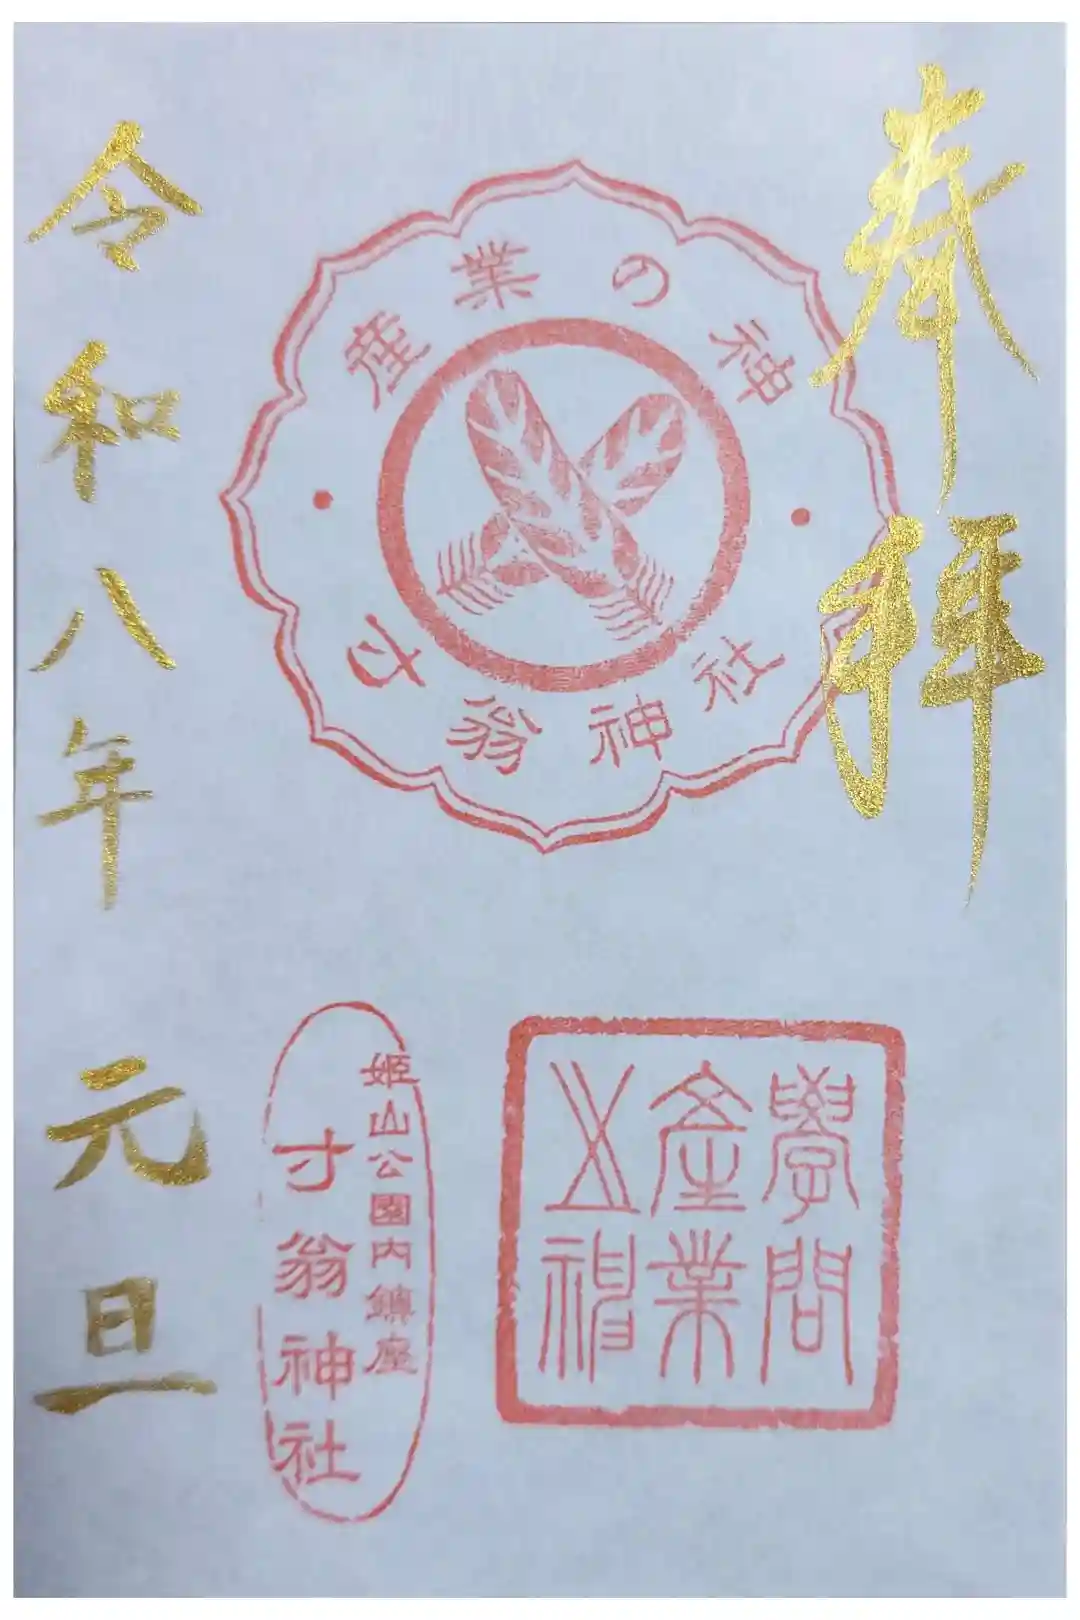 奉拝
産業の神
寸翁神社
學問
産業
之神
姫山公園内鎮座
寸翁神社
令和八年 元旦